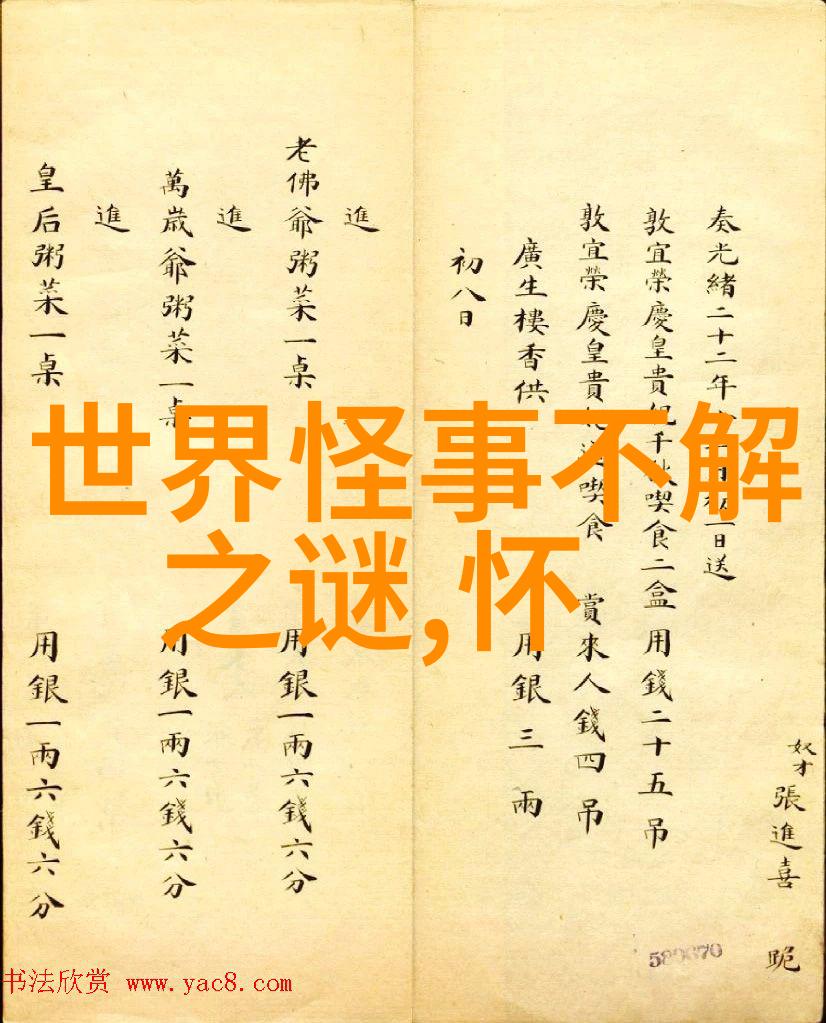 奴才張進喜 跪
奏光緒二十二年
一日送
敦宜榮慶皇貴妃千秋喫食二盒用錢二十五吊
敦宜榮慶皇貴妃送喫食 賞來人錢四吊
廣生樓香供 用銀三兩
初八日
進
老佛爺粥菜一桌 用銀一兩六錢六分
進
萬歲爺粥菜一桌 用銀一兩六錢六分
進
皇后粥菜一桌 用銀一兩六錢六分
世界怪事不解
之谜,怀
589670
书法欣赏 www.yac8.com